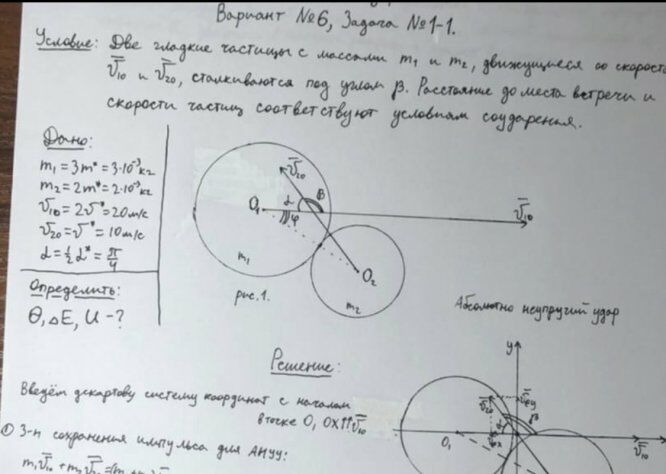 Вариант №6, Задача №1-1.
Условие: Две гладкие частицы с массами m₁ и m₂, движущиеся со скорость
v̅₁₀ и v̅₂₀, сталкиваются под углом β. Расстояние до места встречи и
скорости частиц соответствуют условиям соударения.
Дано:
m₁ = 3m* = 3·10⁻³ кг
m₂ = 2m* = 2·10⁻³ кг
v̅₁₀ = 2v̅* = 20 м/с
v̅₂₀ = v̅* = 10 м/с
α = ½ α* = π/4
Определить:
Θ, ΔE, U - ?
v̅₂₀
O₁ α β
φ
v̅₁₀
m₁
O₂
m₂
рис. 1.
Абсолютно неупругий удар
Решение:
Введём декартову систему координат с началом
в точке O, OX↑↑v̅₁₀
① З-н сохранения импульса для АНУУ:
m₁v̅₁₀ + m₂v̅₂₀ =
y
O₁
v̅₁₀